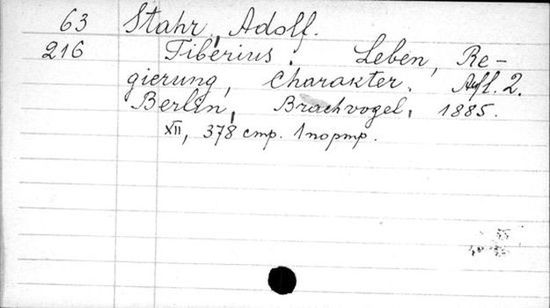 63 Stahr, Adolf.
216 Tiberius. Leben, Re-
gierung, Charakter. Aufl. 2.
Berlin, Brachvogel, 1885.
XII, 378 стр. 1 портр.